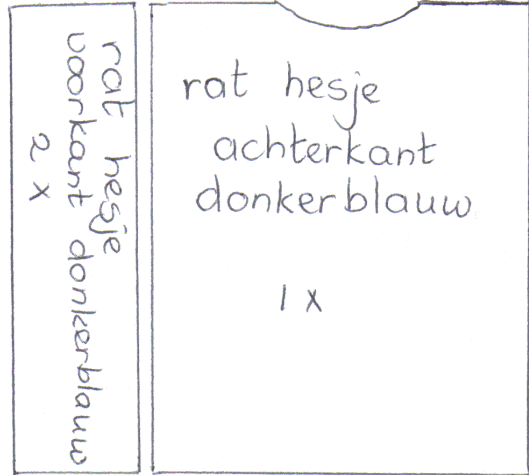 rat hesje
voorkant donkerblauw
2 x
rat hesje
achterkant
donkerblauw
1 x